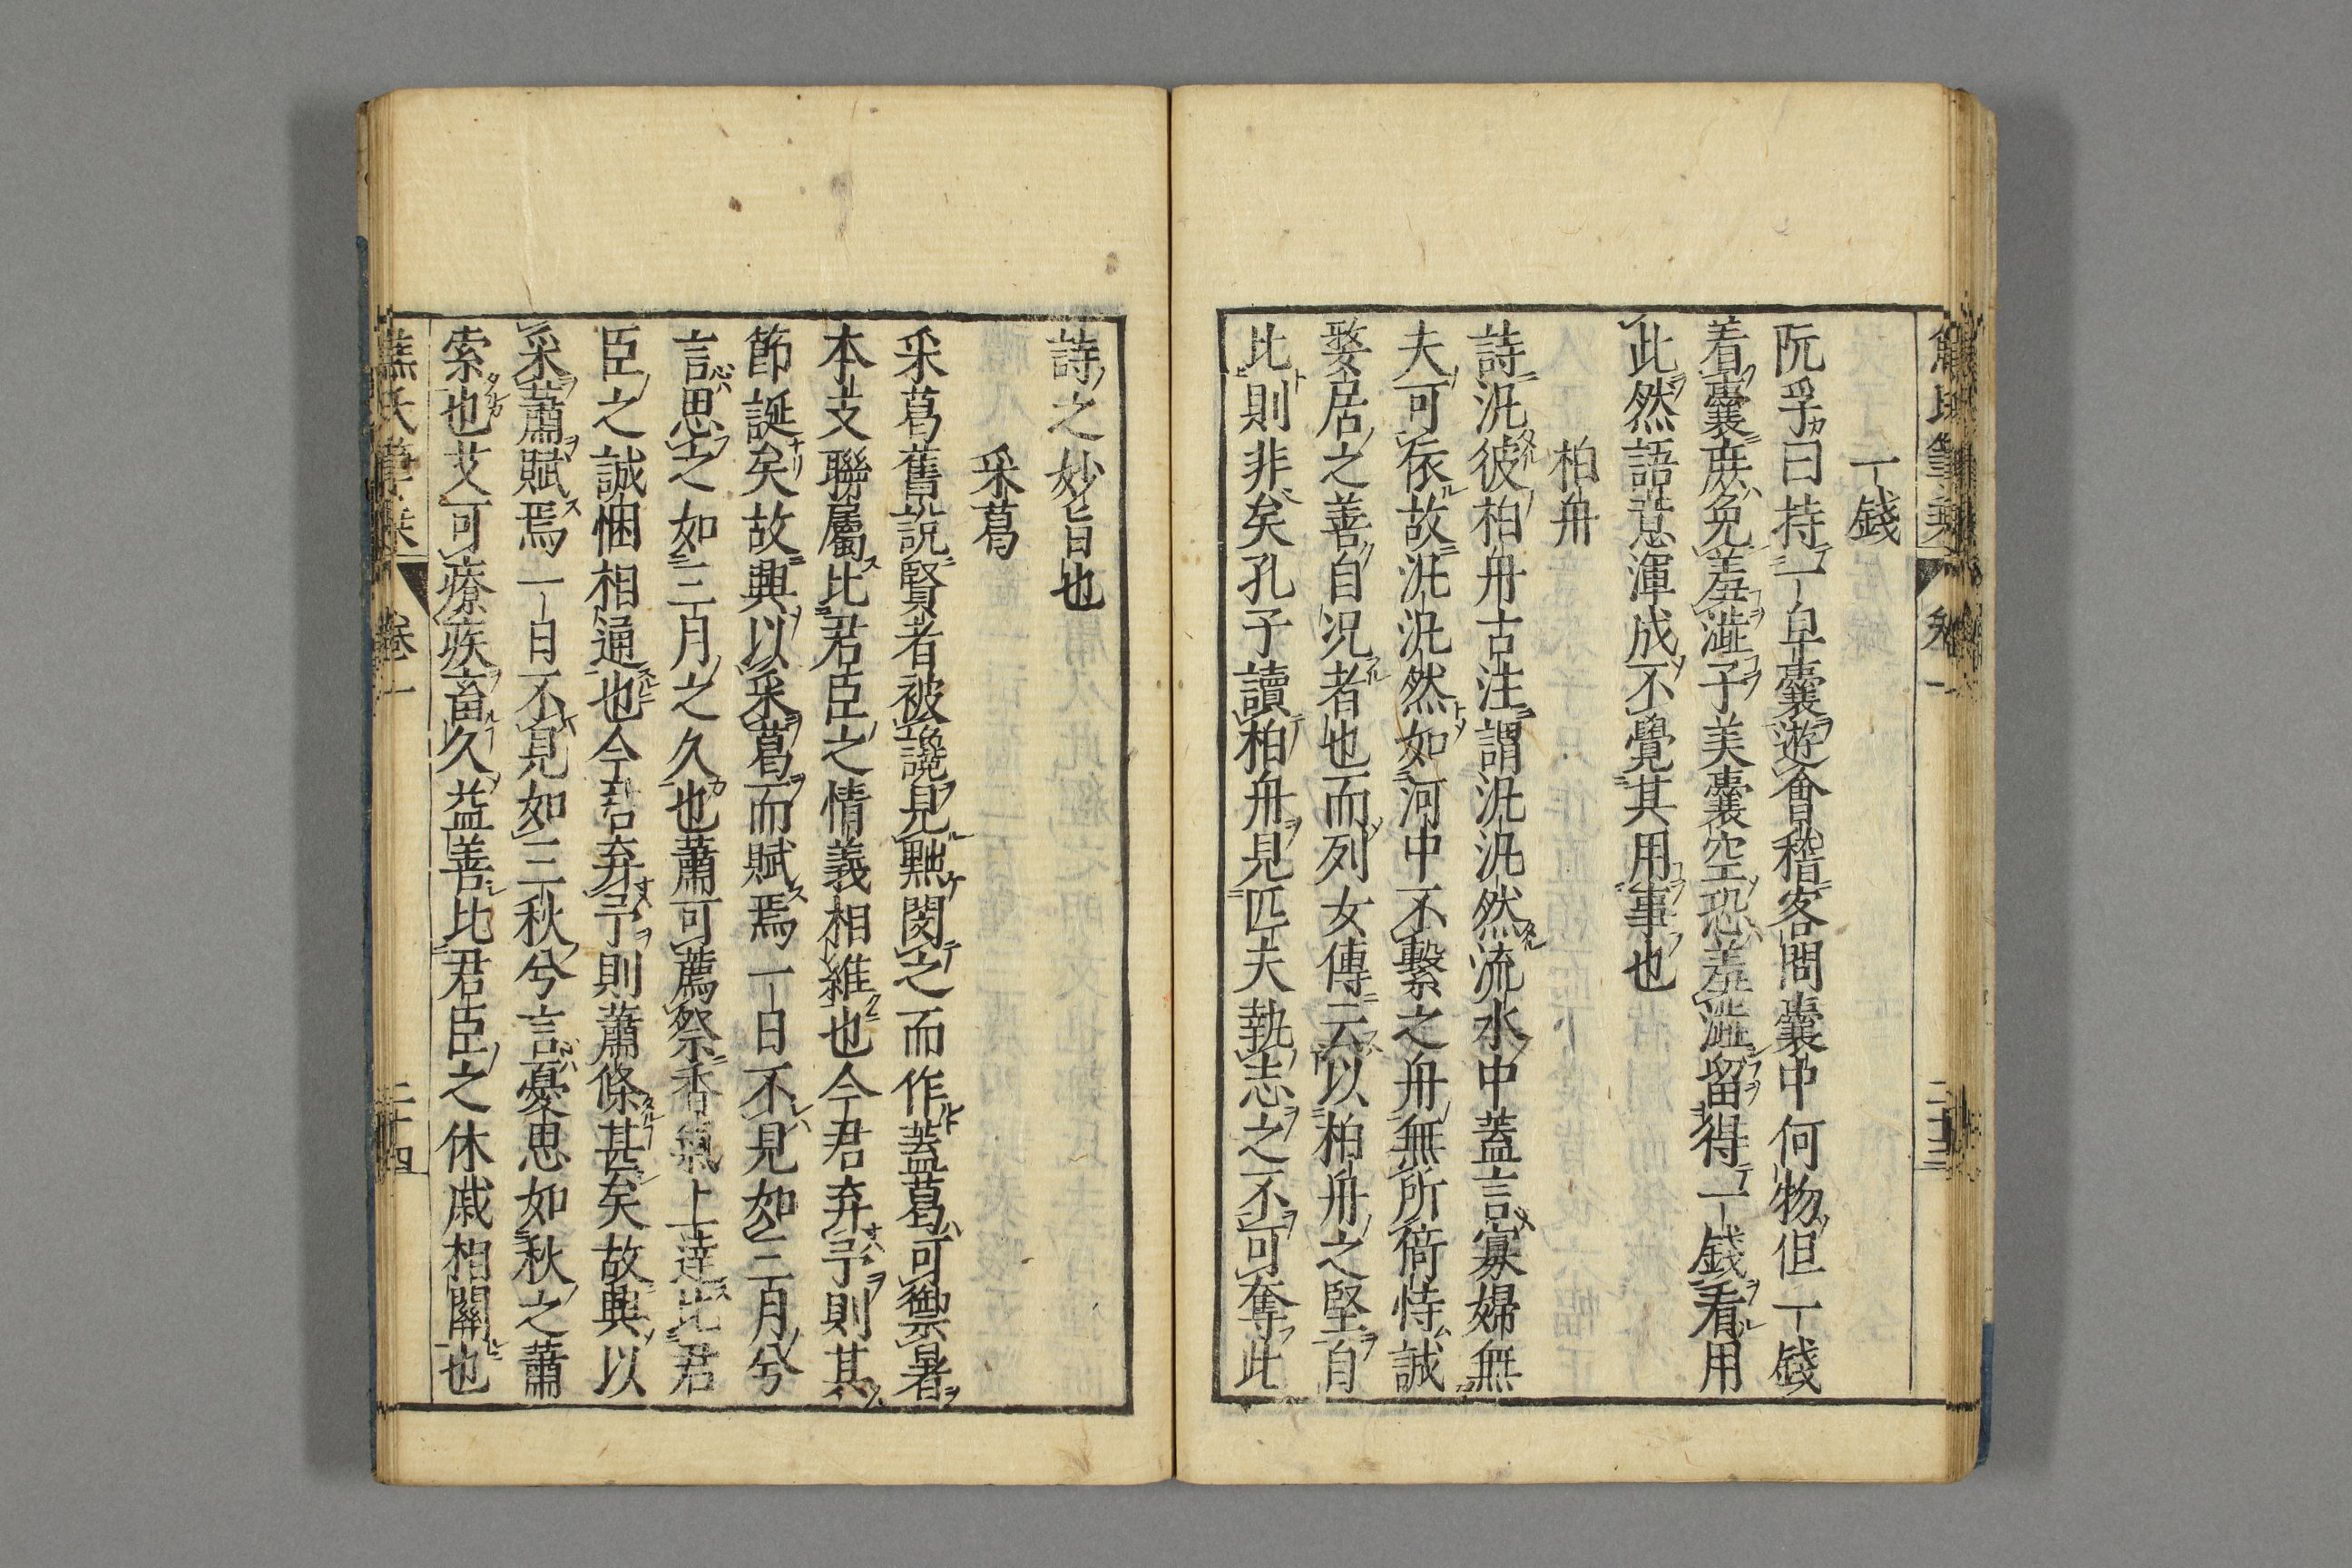 一錢
阮孚曰持一皁囊遊會稽客問囊中何物但一錢
看囊庻免羞澁子美囊空恐羞澁留得一錢看用
此然語意渾成不覺其用事也
柏舟
詩汎彼柏舟古注謂汎汎然流水中蓋言寡婦無
夫可依故汎汎然如河中不繫之舟無所倚恃誠
嫠居之善自况者也而列女傳云以柏舟之堅自
比則非矣孔子讀柏舟見匹夫執志之不可奪此
詩之妙旨也
采葛
采葛舊説賢者被讒見黜閔之而作蓋葛可禦暑
本支聯屬比君臣之情義相維也今君弃予則其
節誕矣故興以采葛而賦焉一日不見如三月兮
言思之如三月之久也蕭可薦祭香氣上達比君
臣之誠悃相通也今君弃予則蕭條甚矣故興以
采蕭賦焉一日不見如三秋兮言憂思如秋之蕭
索也艾可療疾畜久益善比君臣之休戚相關也
卷一
二十四